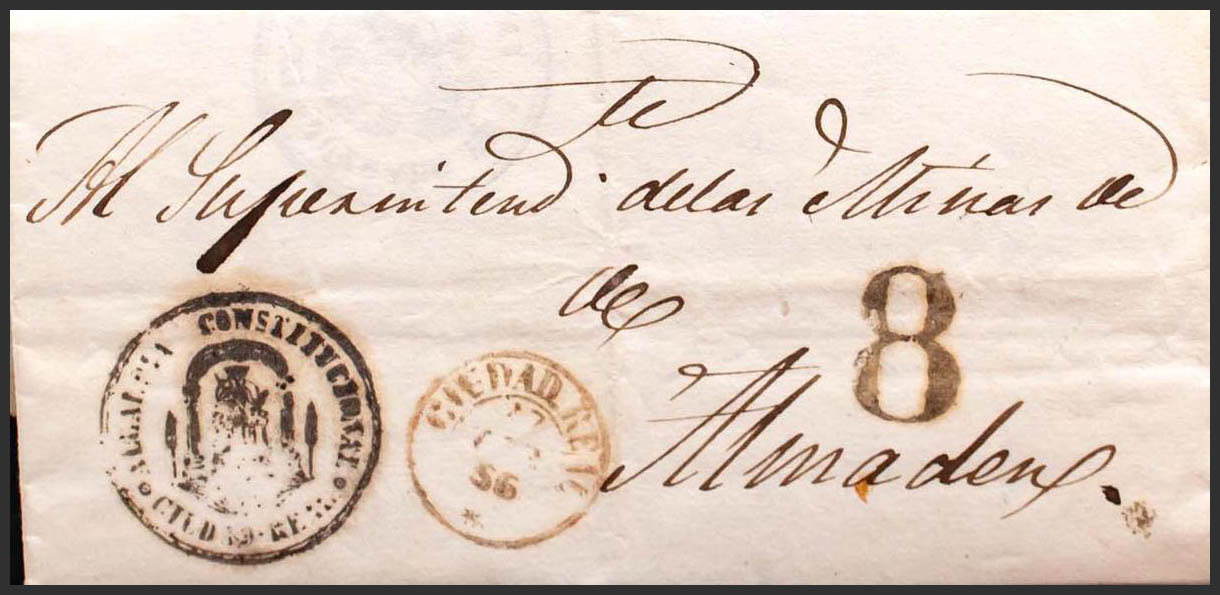 te
Al Superintend. de las Minas de
de
Almaden.
8
ALCALDIA CONSTITUCIONAL
CIUDAD-REAL
CIUDAD REAL
17
56